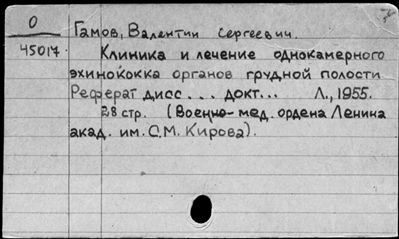 О
45017
Гамов, Валентин Сергеевич.
Клиника и лечение однокамерного
эхинококка органов грудной полости
Реферат дисс... докт... Л., 1955.
28 стр. (Военно-мед. ордена Ленина
акад. им. С.М. Кирова).